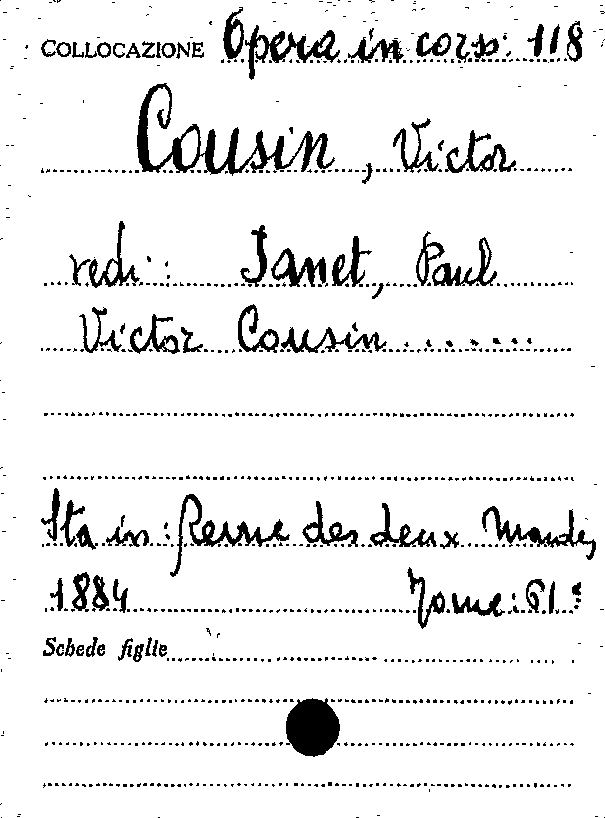 COLLOCAZIONE Opera in corso: 118
Cousin, Victor
vedi: Janet, Paul
Victor Cousin .......
Sta in: Revue des deux Mondes,
1884 Tome: 61º
Schede figlie